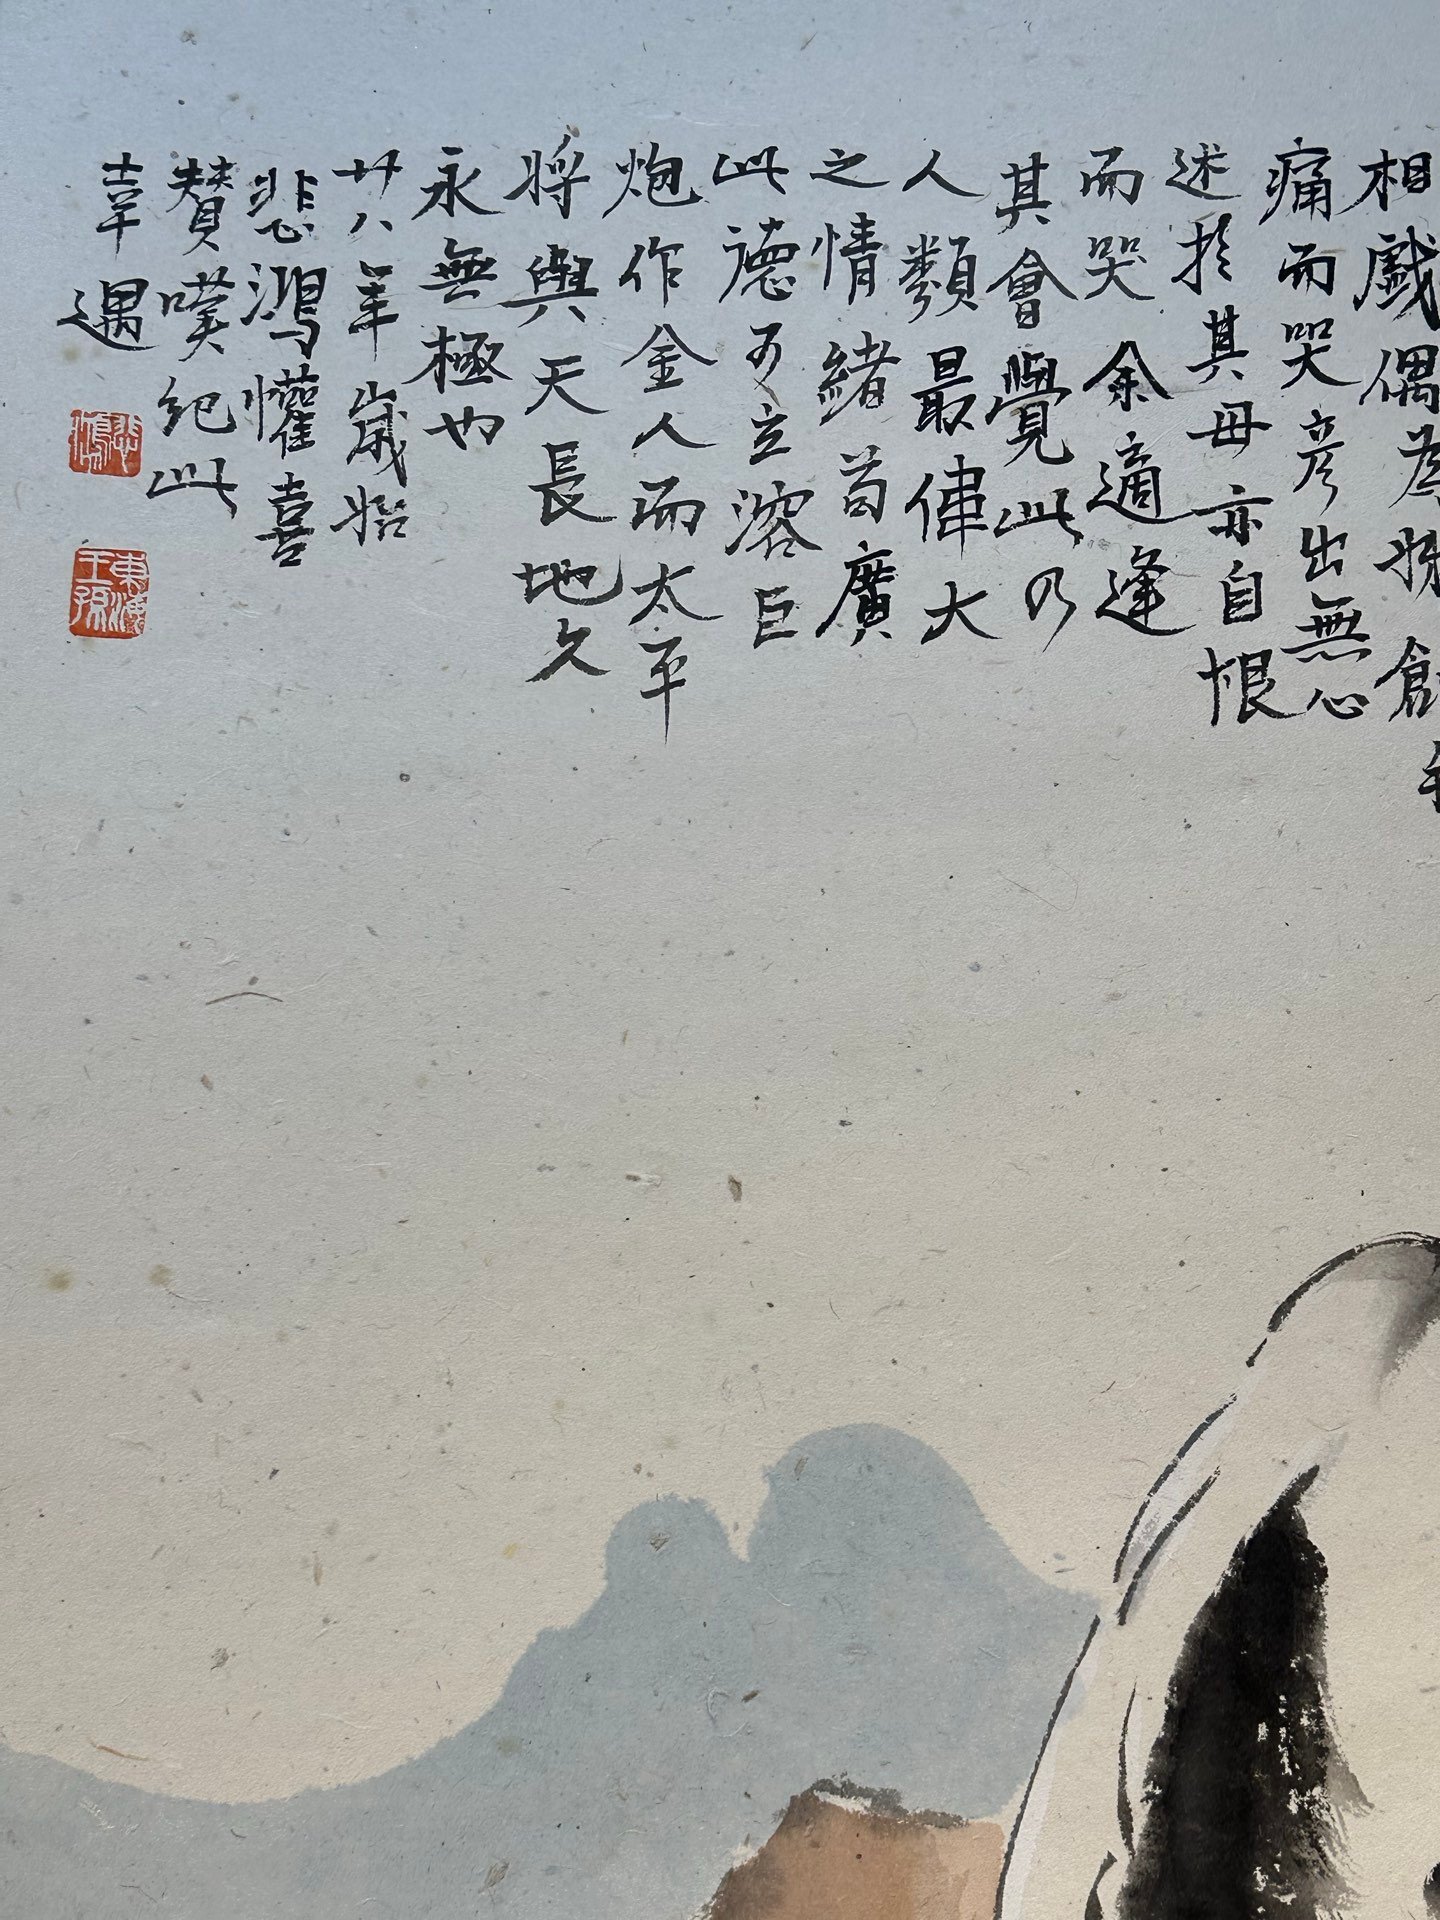 相戲偶為物創
痛而哭彦出無心
述於其母亦自恨
而哭余適逢
其會覺此乃
人類最偉大
之情緒苟廣
此德可立溶巨
炮作金人而太平
將與天長地久
永無極也
廿八年歲始
悲鴻懽喜
贊嘆紀此
幸遇
悲鴻
東海王孫